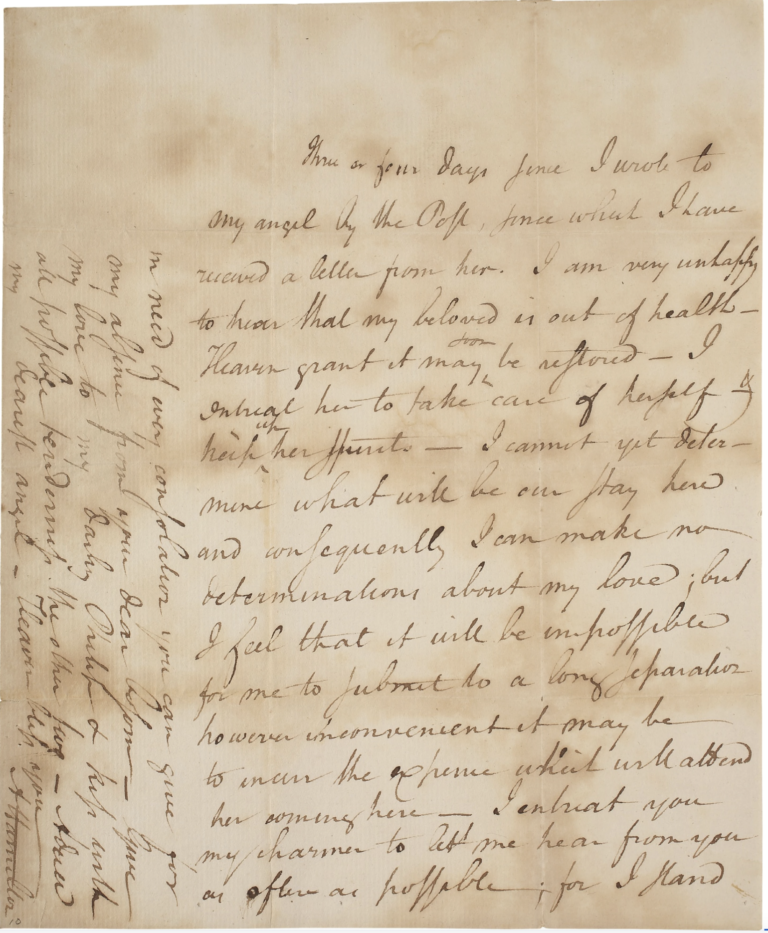 Three or four days since I wrote to
my angel by the Post, since which I have
received a letter from her. I am very unhappy
to hear that my beloved is out of health—
Heaven grant it may soon be restored — I
entreat her to take care of herself &
keep up her spirits — I cannot yet deter-
mine what will be our stay here
and consequently I can make no
determinations about my love; but
I feel that it will be impossible
for me to submit to a long separation
however inconvenient it may be
to incur the expence which will attend
her coming here — I entreat you
my charmer to let me hear from you
as often as possible; for I stand
in need of every consolation you can give for
my absence from your dear bosom — Give
my love to my darling & kiss with
all possible tenderness the other two — Adieu
my dearest angel — Heaven bless you
A Hamilton